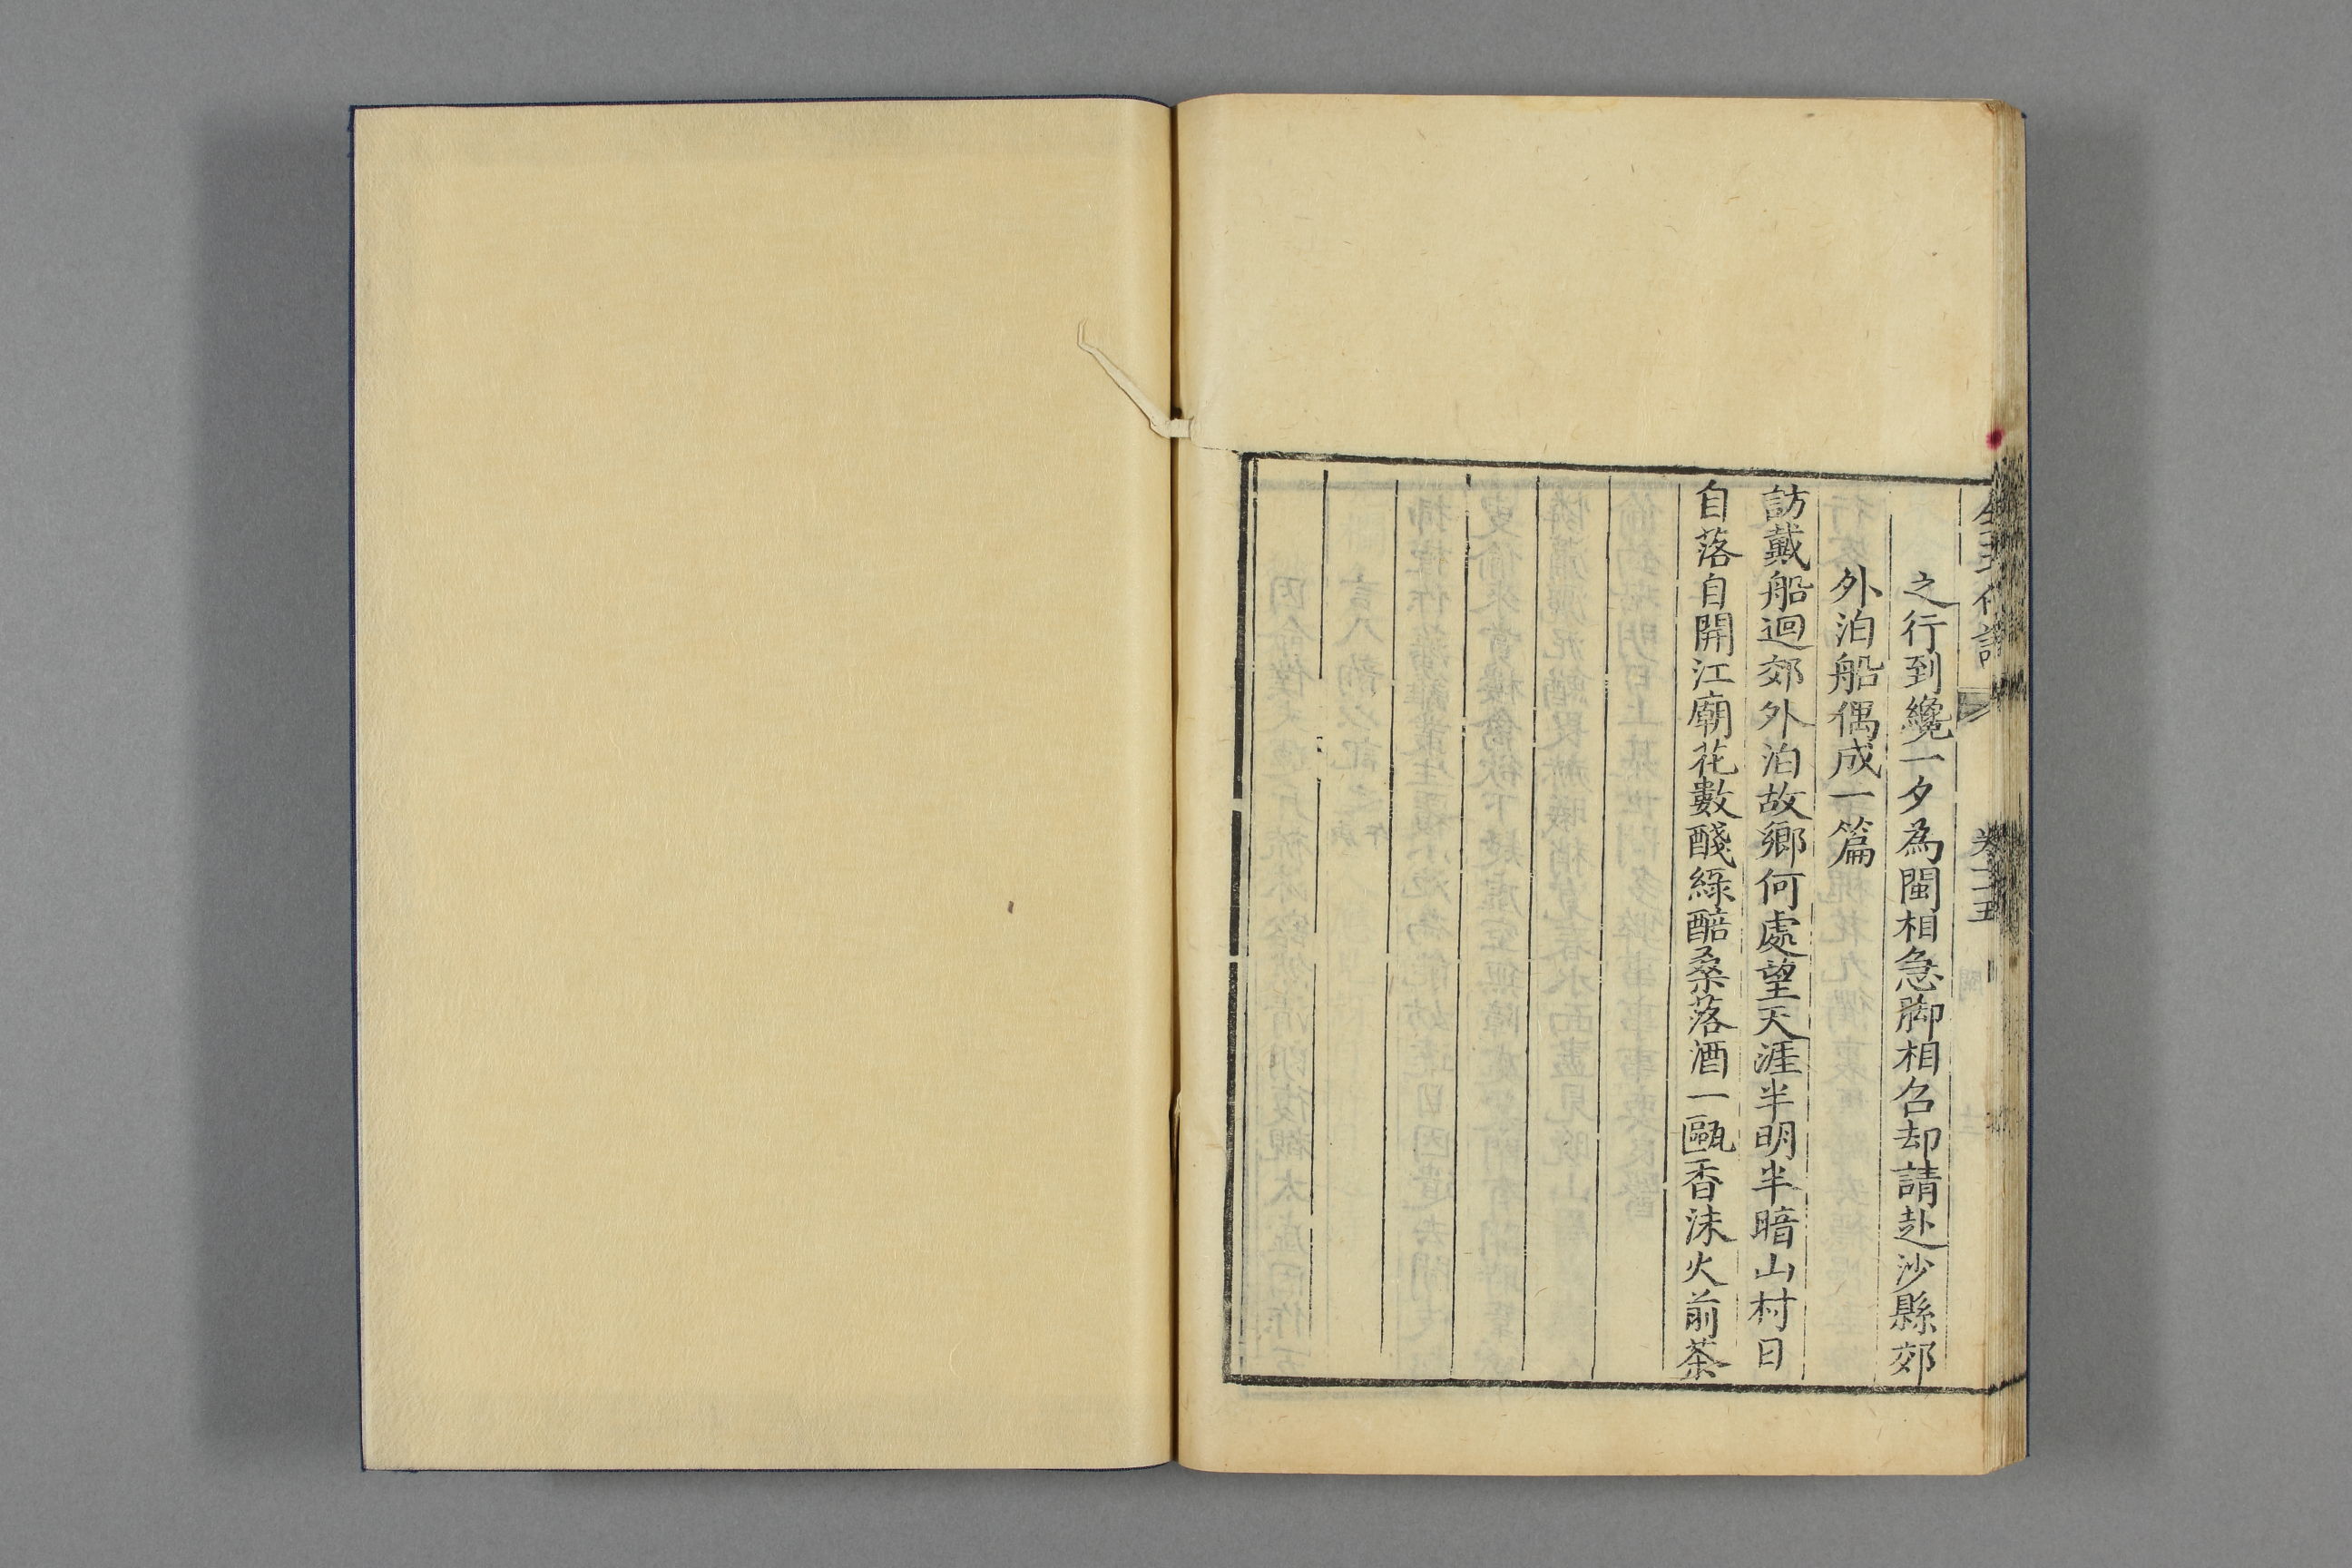 之行到纔一夕為閩相急脚相召却請赴沙縣郊
外泊船偶成一篇
訪戴船迴郊外泊故鄉何處望天涯半明半暗山村日
自落自開江廟花數醆綠醅桑落酒一甌香沫火前茶